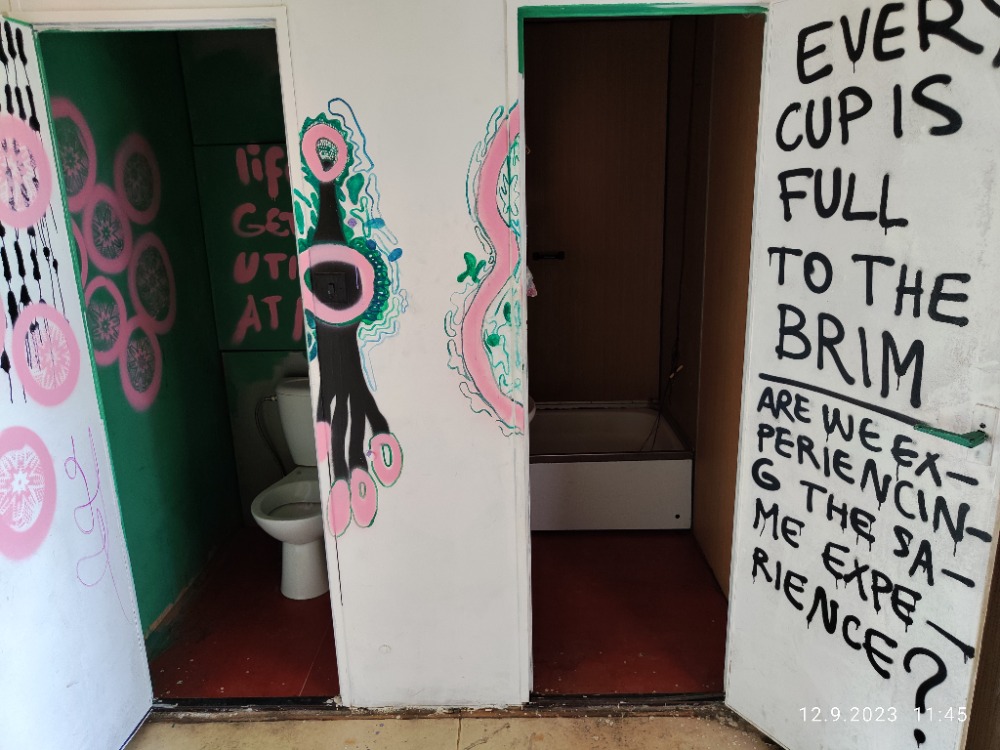 GET
EVERY
CUP IS
FULL
TO THE
BRIM
ARE WE EX-
PERIENCIN-
G THE SA-
ME EXPE-
RIENCE?
12.9.2023 11:45